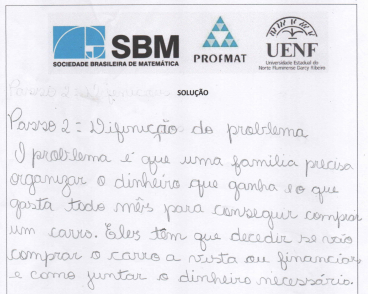 SBM
SOCIEDADE BRASILEIRA DE MATEMÁTICA
PROFMAT
UENF
Universidade Estadual do
Norte Fluminense Darcy Ribeiro
SOLUÇÃO
Passo 2 = Difunição do problema
O problema é que uma família precisa
organizar o dinheiro que ganha e o que
gasta todo mês para conseguir comprar
um carro. Eles têm que decedir se vão
comprar o carro a vista ou financiar
e como juntar o dinheiro necessário.